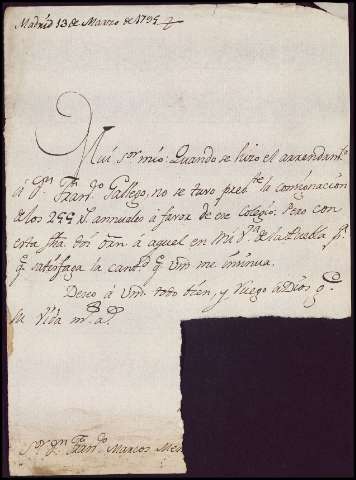 Madrid 13 de Marzo de 1795
Mui Sor. mio: Quando se hizo el arrendamto.
á Dn. Franco. Gallego, no se tuvo preste. la consignacion
de los 299 rs. annuales á favor de ese Colegio. Pero con
esta fha. doi orn. á aquel
qe. satisfaga la cantd. qe. Vm. me insinua.
Deseo á Vm. todo bien, y ruego á Dios ge.
su vida ms. as.
Sor. Dn. Franco. Marcos